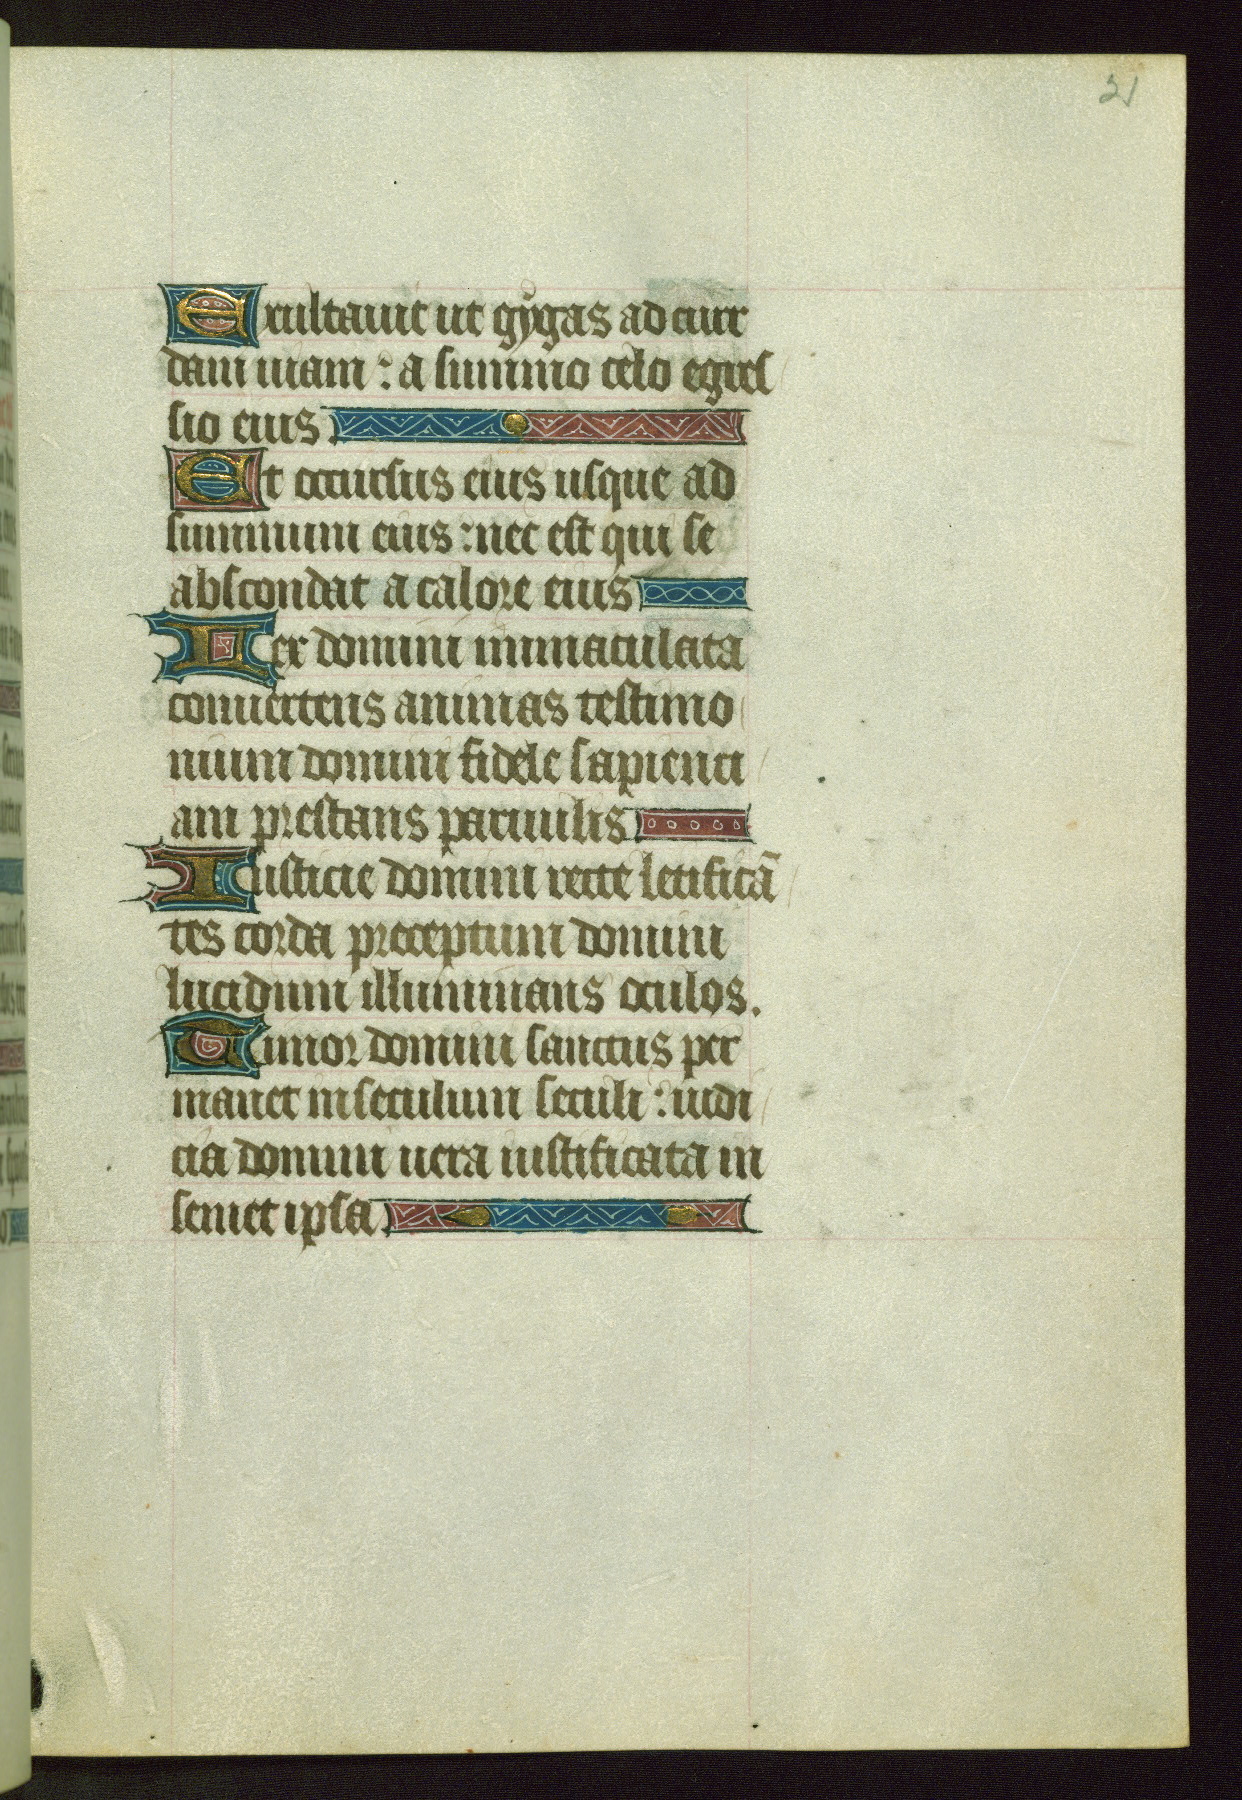 21
Exultauit ut gygas ad curr
dam uiam : a summo celo egres
sio eius
Et occursus eius usque ad
summum eius : nec est qui se
abscondat a calore eius
Lex domini inmaculata
conuertens animas testimo
nium domini fidele sapienci
am prestans paruulis
Iusticie domini recte letificā
tes corda preceptum domini
lucidum illuminans oculos.
Timor domini sanctus per
manet in seculum seculi : iudi
cia domini uera iustificata in
semet ipsa